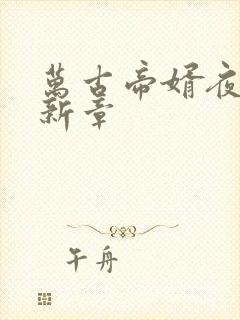 萬古帝婿夜
新章
午舟